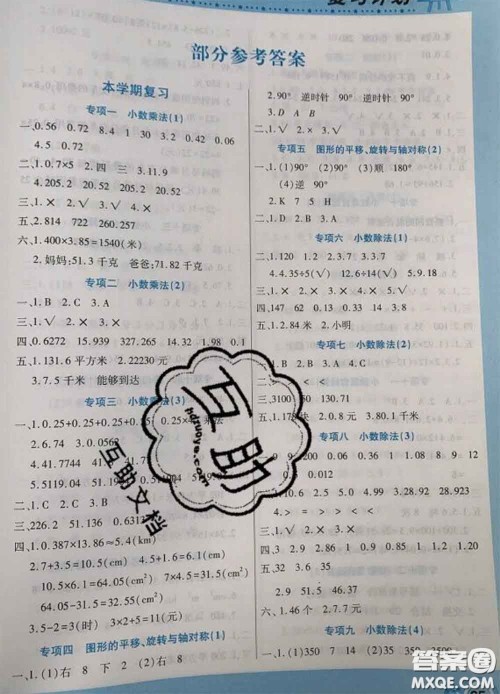 复习计划
部分参考答案
本学期复习
专项一 小数乘法(1)
一、0.56 0.72 8.4 1 30 3.2 0.42 0.06
4.5 0.72
二、1.0.7×5 2.四 三 3.11.9
4.205.2 20.52 205.2 20.52
三、1.× 2.√ 3.√ 4.×
五、2.814 722 260.257
六、1.400×3.85=1540(米)
2.妈妈:51.3千克 爸爸:71.82千克
专项二 小数乘法(2)
一、1.B 2.C 3.A
二、1.√ 2.× 3.× 4.×
四、0.6272 15.939 327.265 14.32 1.98
五、1.131.6平方米 2.22230元
3.7.5千米 能够到达
专项三 小数乘法(3)
一、1.0.25+0.25+0.25
2.7.54 3.0.0562
4.51.1904 51190.4
5.5119.04 5119.04
二、1.C 2.C 3.C
三、226.2 51.136
四、1.0.387×13.86≈5.4(km)
2.7+3.5=10.5(cm) 4.5+1.6=6.1(cm)
10.5×6.1=64.05(cm²) 7×4.5=31.5(cm²)
64.05-31.5=32.55(cm²)
3.5-2=3(时) 3×2+5=11(元)
专项四 图形的平移、旋转与轴对称(1)
一、1.(1)右 8 下 2 (2)右 8
2.90° 逆时针 90° 逆时针 90°
3.D A B
二、1.√ 2.× 3.√
专项五 图形的平移、旋转与轴对称(2)
一、1.(1)90° (2)90° (3)顺 180°
(4)逆 90°
2.K 7 5 H
二、1.D 2.B 3.A
专项六 小数除法(1)
一、1.120 1.2 2.3.69 3.24
4.4.35÷5(√) 12.6÷14(√) 5.9.18
二、1.× 2.√ 3.×
四、147 62 0.13 0.33 14 3.8
五、1.2.84米 2.小明
专项七 小数除法(2)
1.B 2.B 3.A 4.C
> < < <
3100 150 130.71
五、1.178 2.0.8元 3.80.1元
专项八 小数除法(3)
2.8.6 8.649 3.1.08 28.9 28.923
4.> > < < > <
三、1.√ 2.× 3.×
2.9 51.5 46.37
六、1.46个 2.7.7元
专项九 小数除法(4)
一、1.(1)350 35 (2)35 350 3500
互助
hdzuoye.com
互助文档
答案圈
MXQE.COM